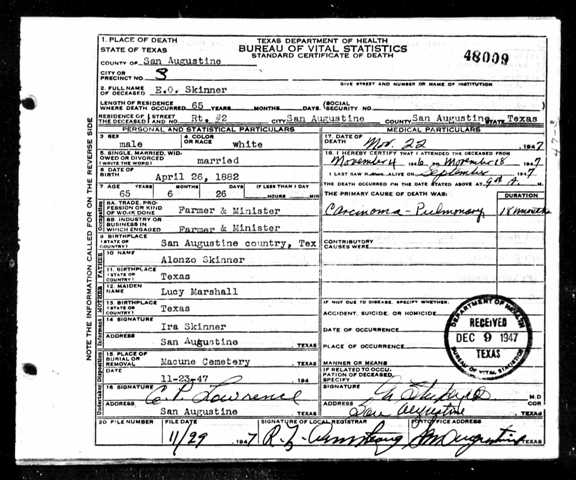 1. PLACE OF DEATH
STATE OF TEXAS
TEXAS DEPARTMENT OF HEALTH
BUREAU OF VITAL STATISTICS
STANDARD CERTIFICATE OF DEATH
48009
COUNTY OF San Augustine
CITY OR PRECINCT NO. 3
GIVE STREET AND NUMBER OR NAME OF INSTITUTION
2. FULL NAME OF DECEASED E.O. Skinner
LENGTH OF RESIDENCE WHERE DEATH OCCURRED 65 YEARS MONTHS DAYS (SOCIAL SECURITY NO.
RESIDENCE OF THE DECEASED STREET AND NO. Rt. #2 CITY San Augustine COUNTY San Augustine STATE Texas
PERSONAL AND STATISTICAL PARTICULARS
3. SEX male
4. COLOR OR RACE white
5. SINGLE, MARRIED, WIDOWED OR DIVORCED (WRITE THE WORD) married
6. DATE OF BIRTH April 26, 1882
7. AGE YEARS MONTHS DAYS IF LESS THAN 1 DAY
65 6 26 HOURS MIN
8A. TRADE, PROFESSION OR KIND OF WORK DONE Farmer & Minister
8B. INDUSTRY OR BUSINESS IN WHICH ENGAGED Farmer & Minister
9. BIRTHPLACE (STATE OR COUNTRY) San Augustine country, Tex
10. NAME Alonzo Skinner
11. BIRTHPLACE (STATE OR COUNTRY) Texas
12. MAIDEN NAME Lucy Marshall
13. BIRTHPLACE (STATE OR COUNTRY) Texas
14. SIGNATURE Ira Skinner
ADDRESS San Augustine TEXAS
15. PLACE OF BURIAL OR REMOVAL Macune Cemetery TEXAS
DATE 11-23-47 194
16. SIGNATURE C. P. Lawrence
ADDRESS San Augustine TEXAS
MEDICAL PARTICULARS
17. DATE OF DEATH Nov. 22 1947
18. I HEREBY CERTIFY THAT I ATTENDED THE DECEASED FROM
November 4 1946 TO November 8 1947
I LAST SAW ALIVE ON September 1947
THE DEATH OCCURRED ON THE DATE STATED ABOVE AT M.
THE PRIMARY CAUSE OF DEATH WAS: DURATION
Carcinoma - Pulmonary 18 months
CONTRIBUTORY CAUSES WERE:
IF NOT DUE TO DISEASE, SPECIFY WHETHER:
ACCIDENT, SUICIDE, OR HOMICIDE
DATE OF OCCURRENCE
PLACE OF OCCURRENCE
MANNER OR MEANS
IF RELATED TO OCCUPATION OF DECEASED, SPECIFY
SIGNATURE M.D.
ADDRESS San Augustine TEXAS
DEPARTMENT OF HEALTH
RECEIVED
DEC 9 1947
TEXAS
BUREAU OF VITAL STATISTICS
20. FILE NUMBER
FILE DATE 11/29 1947
SIGNATURE OF LOCAL REGISTRAR R. L. Armstrong
POSTOFFICE ADDRESS San Augustine TEXAS
NOTE THE INFORMATION CALLED FOR ON THE REVERSE SIDE